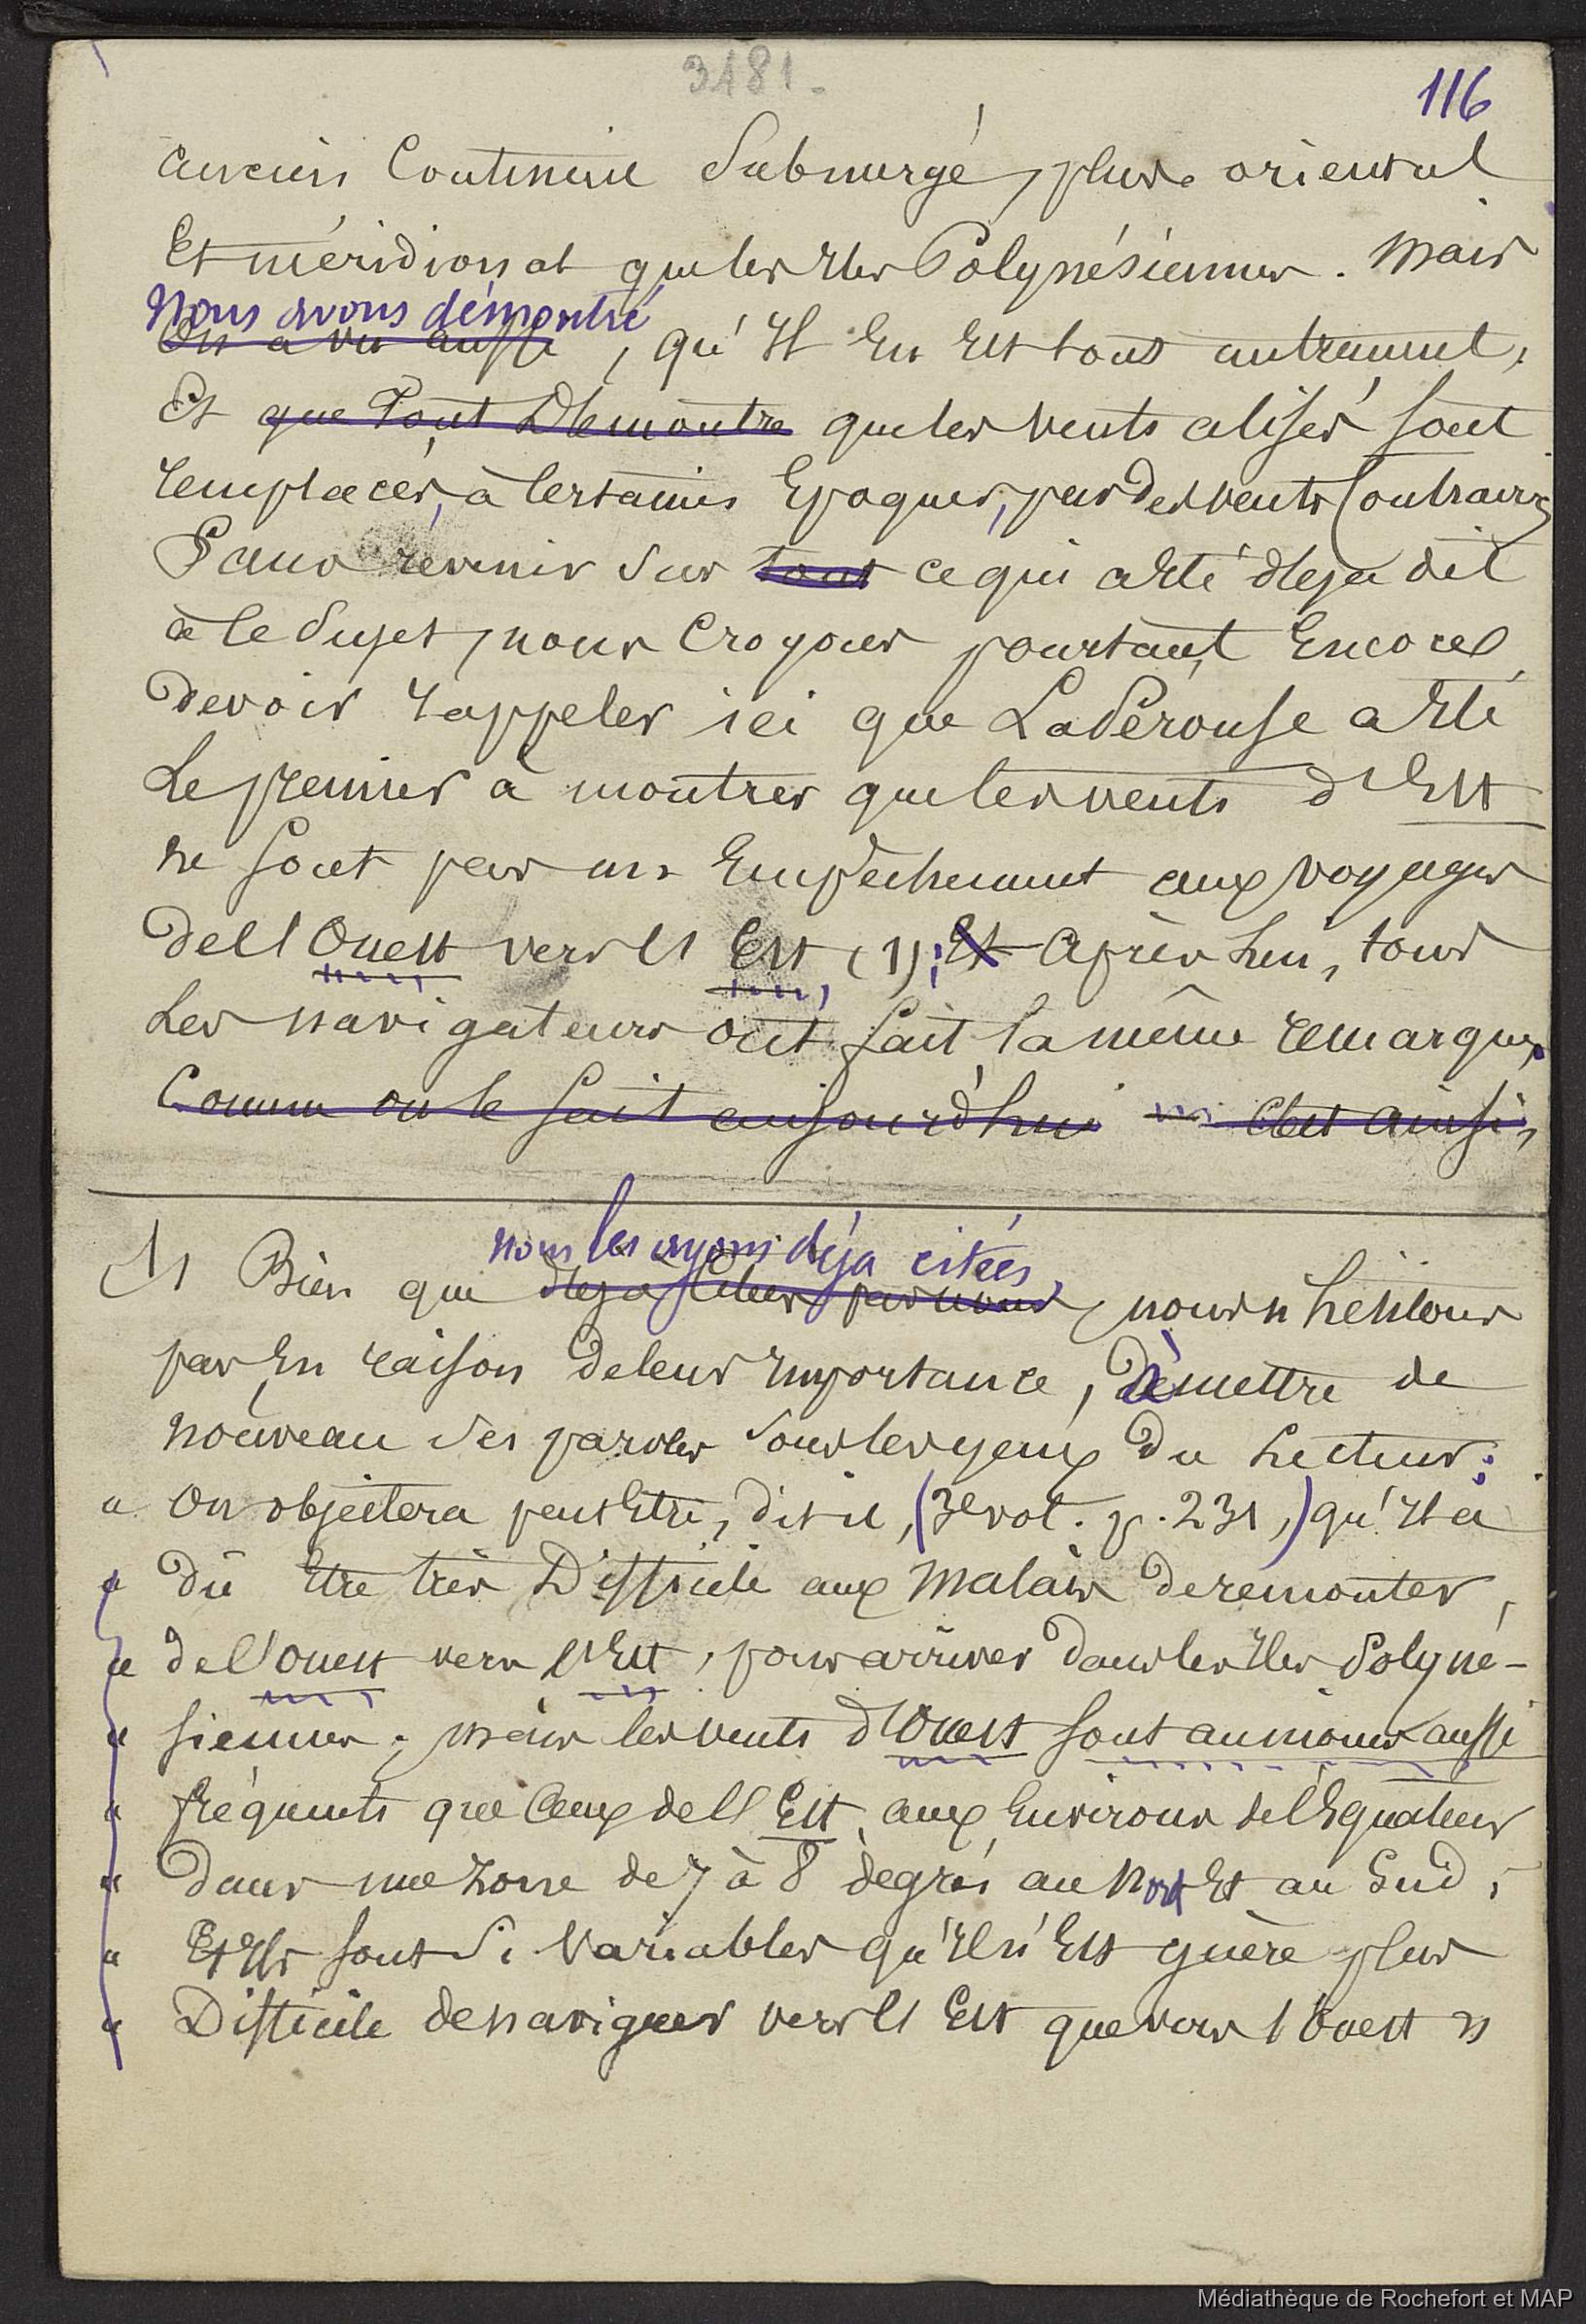 3181.
116
ancien Continent Submergé, plus oriental
Et méridional que les Iles Polynésiennes. Mais
Nous avons démontré
On a vu aussi, qu'Il En Est tout autrement,
Et que Tout Démontre que les vents alisés sont
remplacés, à Certaines Epoques, par des vents Contraires
Sans revenir sur tout ce qui a Eté déja dit
à ce Sujet, nous Croyons pourtant Encore
Devoir rappeler ici que LaPérouse a Eté
Le premier à montrer que les vents d'Est
ne sont pas un Empêchement aux voyages
de l'Ouest vers l'Est (1); Et Après lui, tous
Les navigateurs ont fait la même remarque,
Comme on le sait aujourd'hui C'est ainsi,
nous les avons déja citées,
(1) Bien que déja Citées par nous, nous n'hésitons
pas, En raison de leur Importance, à mettre de
nouveau ses paroles sous les yeux Du Lecteur:
« On objectera peut Etre, dit il, (3e vol. p. 231,) qu'Il a
« Dû Etre très Difficile aux Malais de remonter,
« de l'Ouest vers l'Est, pour arriver dans les Iles Polyné-
« siennes; mais les vents d'Ouest sont au moins aussi
« fréquents que Ceux de l'Est, aux Environs de l'Equateur
« Dans une Zone de 7 à 8 degrés au Nord Et au Sud,
« Et Ils sont Si Variables qu'Il n'Est guère plus
« Difficile de naviguer vers l'Est que vers l'Ouest »
Médiathèque de Rochefort et MAP